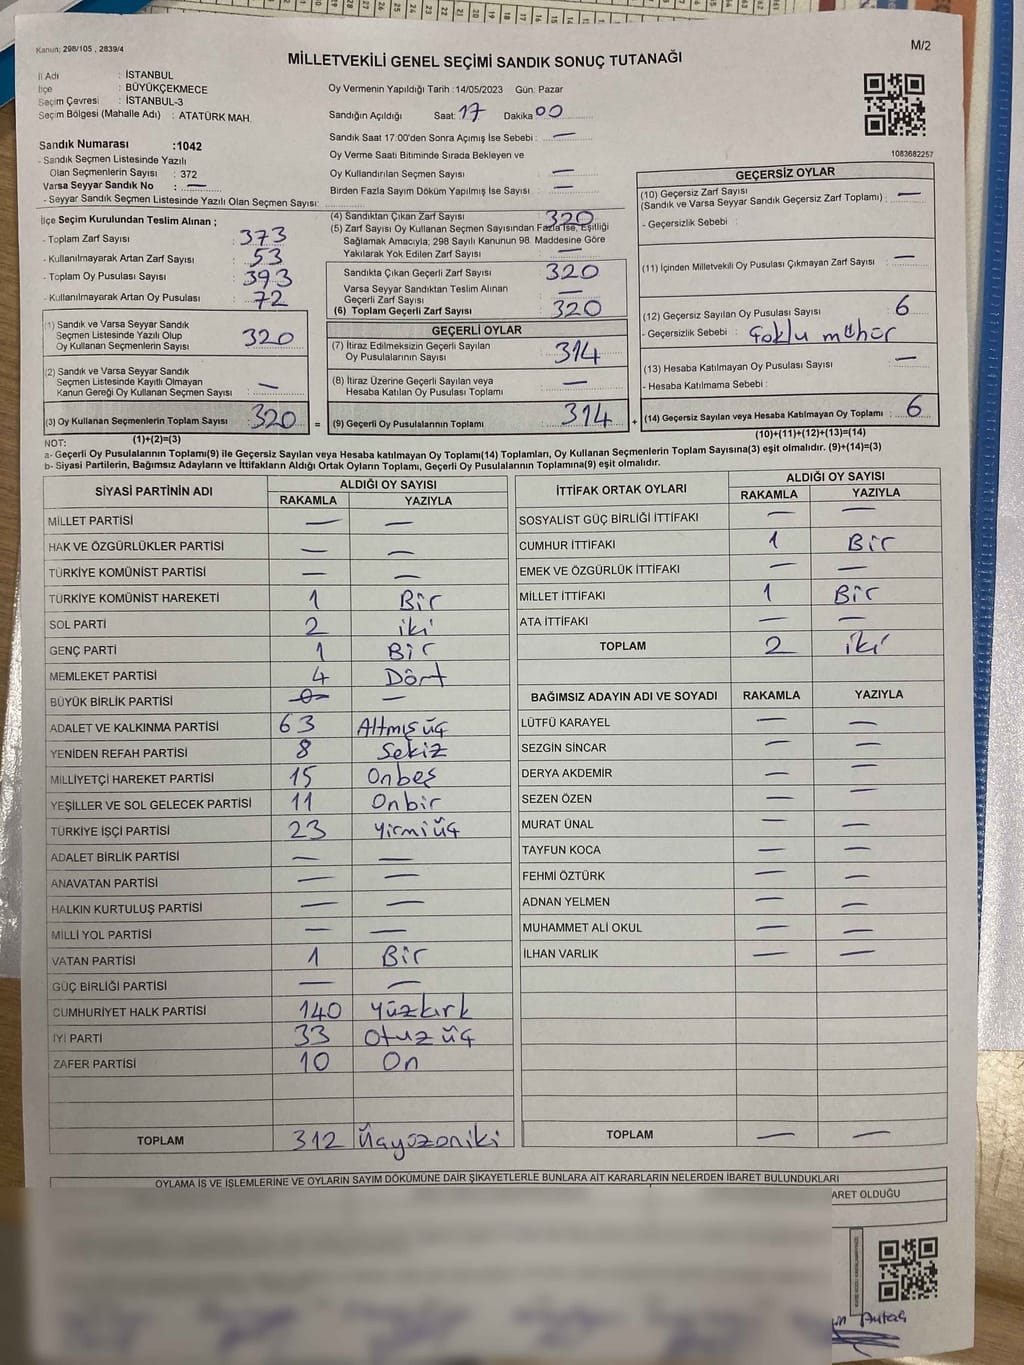 Kanun; 298/105 , 2839/4
M/2
MİLLETVEKİLİ GENEL SEÇİMİ SANDIK SONUÇ TUTANAĞI
İl Adı : İSTANBUL
İlçe : BÜYÜKÇEKMECE
Seçim Çevresi : İSTANBUL-3
Seçim Bölgesi (Mahalle Adı) : ATATÜRK MAH.
Oy Vermenin Yapıldığı Tarih :14/05/2023 Gün: Pazar
Sandığın Açıldığı Saat: 17 Dakika 00
Sandık Saat 17:00'den Sonra Açımış İse Sebebi : —
Oy Verme Saati Bitiminde Sırada Bekleyen ve
Oy Kullandırılan Seçmen Sayısı : —
Birden Fazla Sayım Döküm Yapılmış İse Sayısı : —
1083682257
Sandık Numarası :1042
- Sandık Seçmen Listesinde Yazılı
Olan Seçmenlerin Sayısı : 372
Varsa Seyyar Sandık No : —
- Seyyar Sandık Seçmen Listesinde Yazılı Olan Seçmen Sayısı:
İlçe Seçim Kurulundan Teslim Alınan ;
- Toplam Zarf Sayısı : 373
- Kullanılmayarak Artan Zarf Sayısı : 53
- Toplam Oy Pusulası Sayısı : 393
- Kullanılmayarak Artan Oy Pusulası : 72
(1) Sandık ve Varsa Seyyar Sandık
Seçmen Listesinde Yazılı Olup
Oy Kullanan Seçmenlerin Sayısı 320
(2) Sandık ve Varsa Seyyar Sandık
Seçmen Listesinde Kayıtlı Olmayan
Kanun Gereği Oy Kullanan Seçmen Sayısı —
(3) Oy Kullanan Seçmenlerin Toplam Sayısı 320
(1)+(2)=(3)
(4) Sandıktan Çıkan Zarf Sayısı : 320
(5) Zarf Sayısı Oy Kullanan Seçmen Sayısından Fazla İse, Eşitliği
Sağlamak Amacıyla; 298 Sayılı Kanunun 98. Maddesine Göre
Yakılarak Yok Edilen Zarf Sayısı : —
Sandıkta Çıkan Geçerli Zarf Sayısı 320
Varsa Seyyar Sandıktan Teslim Alınan
Geçerli Zarf Sayısı —
(6) Toplam Geçerli Zarf Sayısı 320
GEÇERLİ OYLAR
(7) İtiraz Edilmeksizin Geçerli Sayılan
Oy Pusulalarının Sayısı 314
(8) İtiraz Üzerine Geçerli Sayılan veya
Hesaba Katılan Oy Pusulası Toplamı —
= (9) Geçerli Oy Pusulalarının Toplamı 314
GEÇERSİZ OYLAR
(10) Geçersiz Zarf Sayısı
(Sandık ve Varsa Seyyar Sandık Geçersiz Zarf Toplamı) : —
- Geçersizlik Sebebi :
(11) İçinden Milletvekili Oy Pusulası Çıkmayan Zarf Sayısı : —
(12) Geçersiz Sayılan Oy Pusulası Sayısı : 6
- Geçersizlik Sebebi : Çoklu mühür
(13) Hesaba Katılmayan Oy Pusulası Sayısı : —
- Hesaba Katılmama Sebebi :
+ (14) Geçersiz Sayılan veya Hesaba Katılmayan Oy Toplamı : 6
(10)+(11)+(12)+(13)=(14)
NOT:
a- Geçerli Oy Pusulalarının Toplamı(9) ile Geçersiz Sayılan veya Hesaba katılmayan Oy Toplamı(14) Toplamları, Oy Kullanan Seçmenlerin Toplam Sayısına(3) eşit olmalıdır. (9)+(14)=(3)
b- Siyasi Partilerin, Bağımsız Adayların ve İttifakların Aldığı Ortak Oyların Toplamı, Geçerli Oy Pusulalarının Toplamına(9) eşit olmalıdır.
SİYASİ PARTİNİN ADI ALDIĞI OY SAYISI
RAKAMLA YAZIYLA
MİLLET PARTİSİ — —
HAK VE ÖZGÜRLÜKLER PARTİSİ — —
TÜRKİYE KOMÜNİST PARTİSİ — —
TÜRKİYE KOMÜNİST HAREKETİ 1 Bir
SOL PARTİ 2 iki
GENÇ PARTİ 1 Bir
MEMLEKET PARTİSİ 4 Dört
BÜYÜK BİRLİK PARTİSİ 0 —
ADALET VE KALKINMA PARTİSİ 63 Altmış üç
YENİDEN REFAH PARTİSİ 8 Sekiz
MİLLİYETÇİ HAREKET PARTİSİ 15 Onbeş
YEŞİLLER VE SOL GELECEK PARTİSİ 11 Onbir
TÜRKİYE İŞÇİ PARTİSİ 23 Yirmi üç
ADALET BİRLİK PARTİSİ — —
ANAVATAN PARTİSİ — —
HALKIN KURTULUŞ PARTİSİ — —
MİLLİ YOL PARTİSİ — —
VATAN PARTİSİ 1 Bir
GÜÇ BİRLİĞİ PARTİSİ — —
CUMHURİYET HALK PARTİSİ 140 Yüzkırk
İYİ PARTİ 33 Otuz üç
ZAFER PARTİSİ 10 On
TOPLAM 312 Üçyüzoniki
İTTİFAK ORTAK OYLARI ALDIĞI OY SAYISI
RAKAMLA YAZIYLA
SOSYALİST GÜÇ BİRLİĞİ İTTİFAKI — —
CUMHUR İTTİFAKI 1 Bir
EMEK VE ÖZGÜRLÜK İTTİFAKI — —
MİLLET İTTİFAKI 1 Bir
ATA İTTİFAKI — —
TOPLAM 2 iki
BAĞIMSIZ ADAYIN ADI VE SOYADI RAKAMLA YAZIYLA
LÜTFÜ KARAYEL — —
SEZGİN SİNCAR — —
DERYA AKDEMİR — —
SEZEN ÖZEN — —
MURAT ÜNAL — —
TAYFUN KOCA — —
FEHMİ ÖZTÜRK — —
ADNAN YELMEN — —
MUHAMMET ALİ OKUL — —
İLHAN VARLIK — —
TOPLAM — —
OYLAMA İŞ VE İŞLEMLERİNE VE OYLARIN SAYIM DÖKÜMÜNE DAİR ŞİKAYETLERLE BUNLARA AİT KARARLARIN NELERDEN İBARET BULUNDUKLARI
ARET OLDUĞU